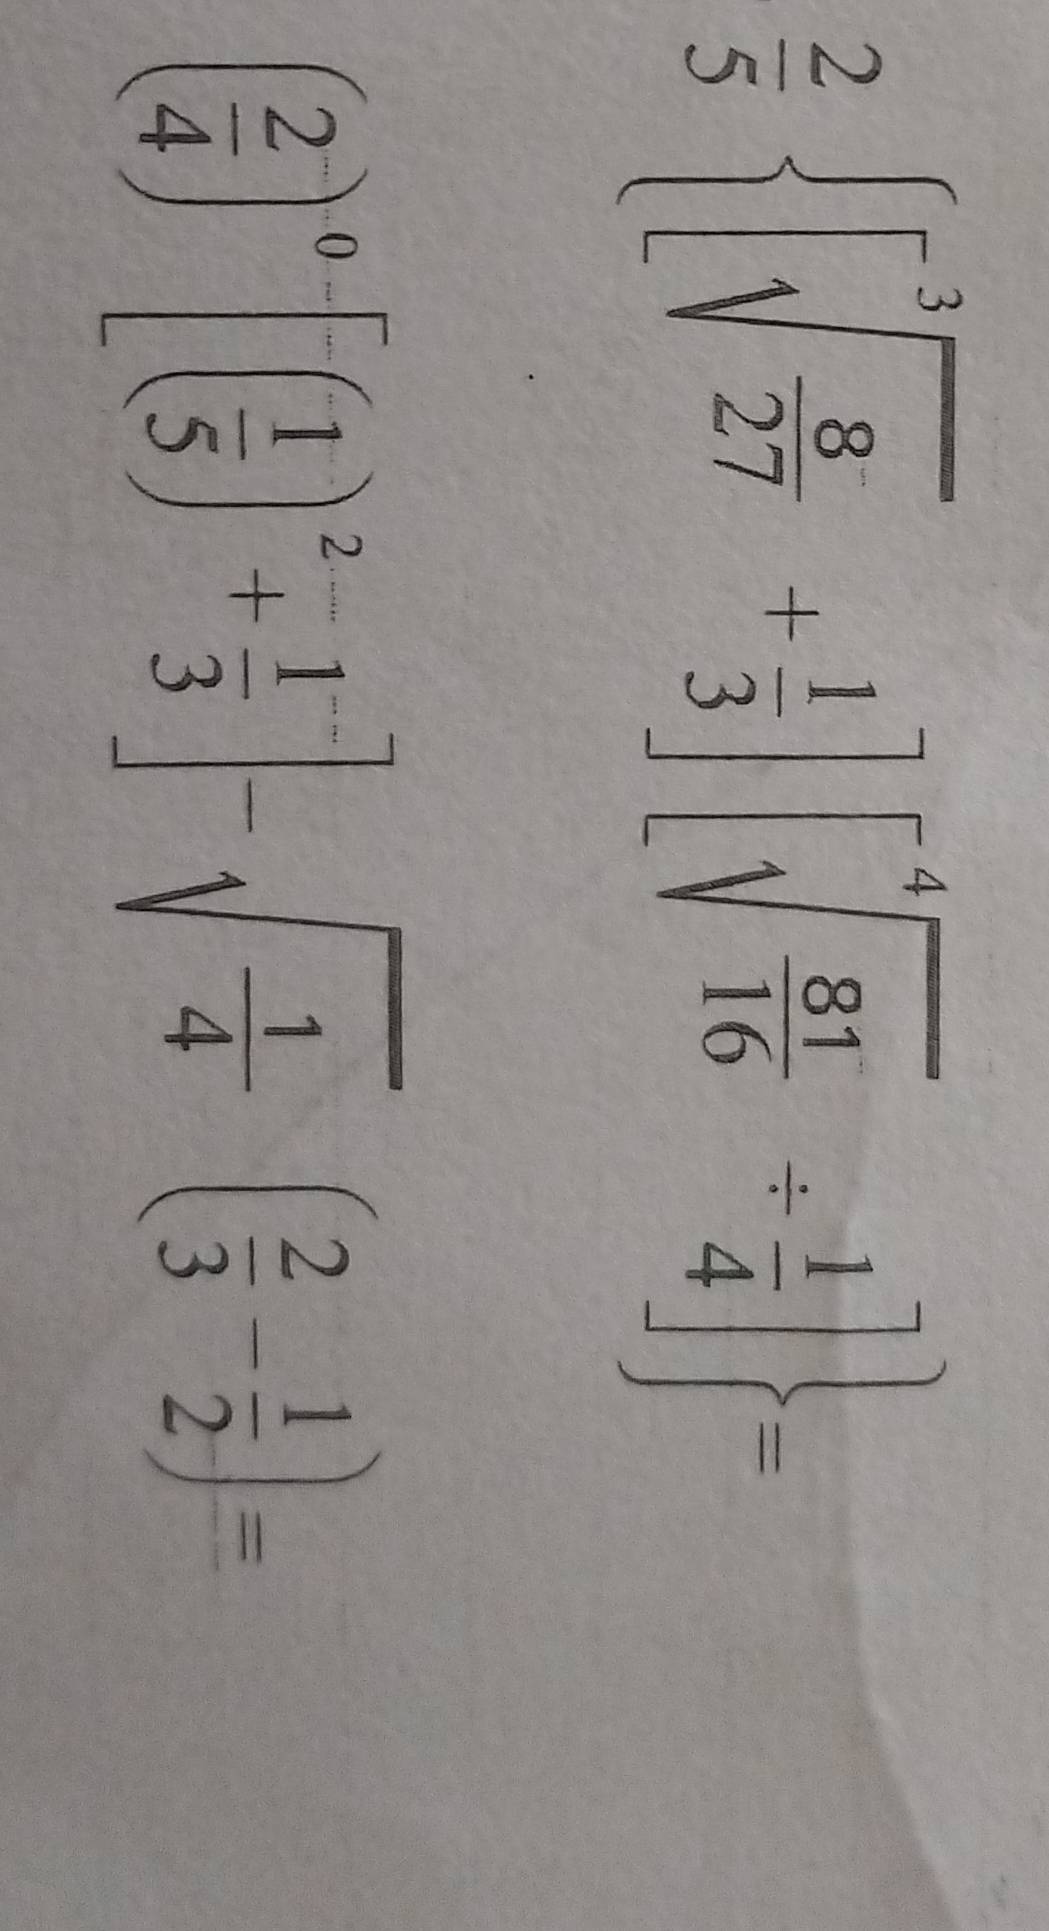 2/5 { [ ∛(8/27) + 1/3 ] [ ∜(81/16) ÷ 1/4 ] } =
(2/4)⁰ [ (1/5)² + 1/3 ] − √(1/4) (2/3 − 1/2) =